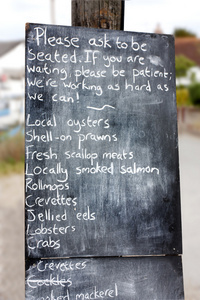 Please ask to be
Seated. If you are
waiting, please be patient;
We're working as hard as
we can!
Local oysters
Shell-on prawns
Fresh scallop meats
Locally smoked salmon
Rollmops
Crevettes
Jellied eels
Lobsters
Crabs
Crevettes
Cockles
smoked mackerel